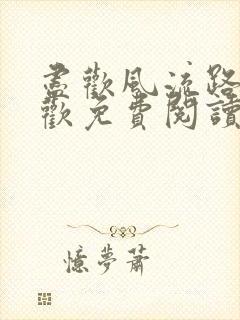 盡歡風流路
歡免費閱讀
憶夢蕭